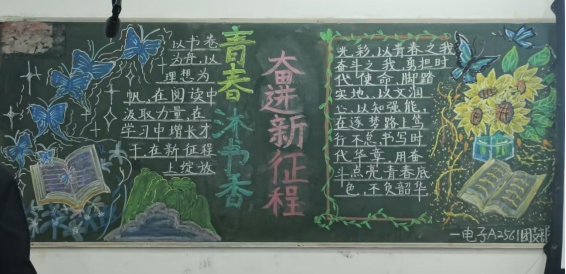 以书卷
为舟，以
理想为
帆，在阅读中
汲取力量，在
学习中增长才
干，在新征程
上绽放
青春沐书香
奋进新征程
光彩，以青春之我
奋斗之我，勇担时
代使命，脚踏
实地，以文润
心，以知强能，
在逐梦路上笃
行不怠，书写时
代华章，用奋
斗点亮青春底
色，不负韶华
一电子A2561团支部